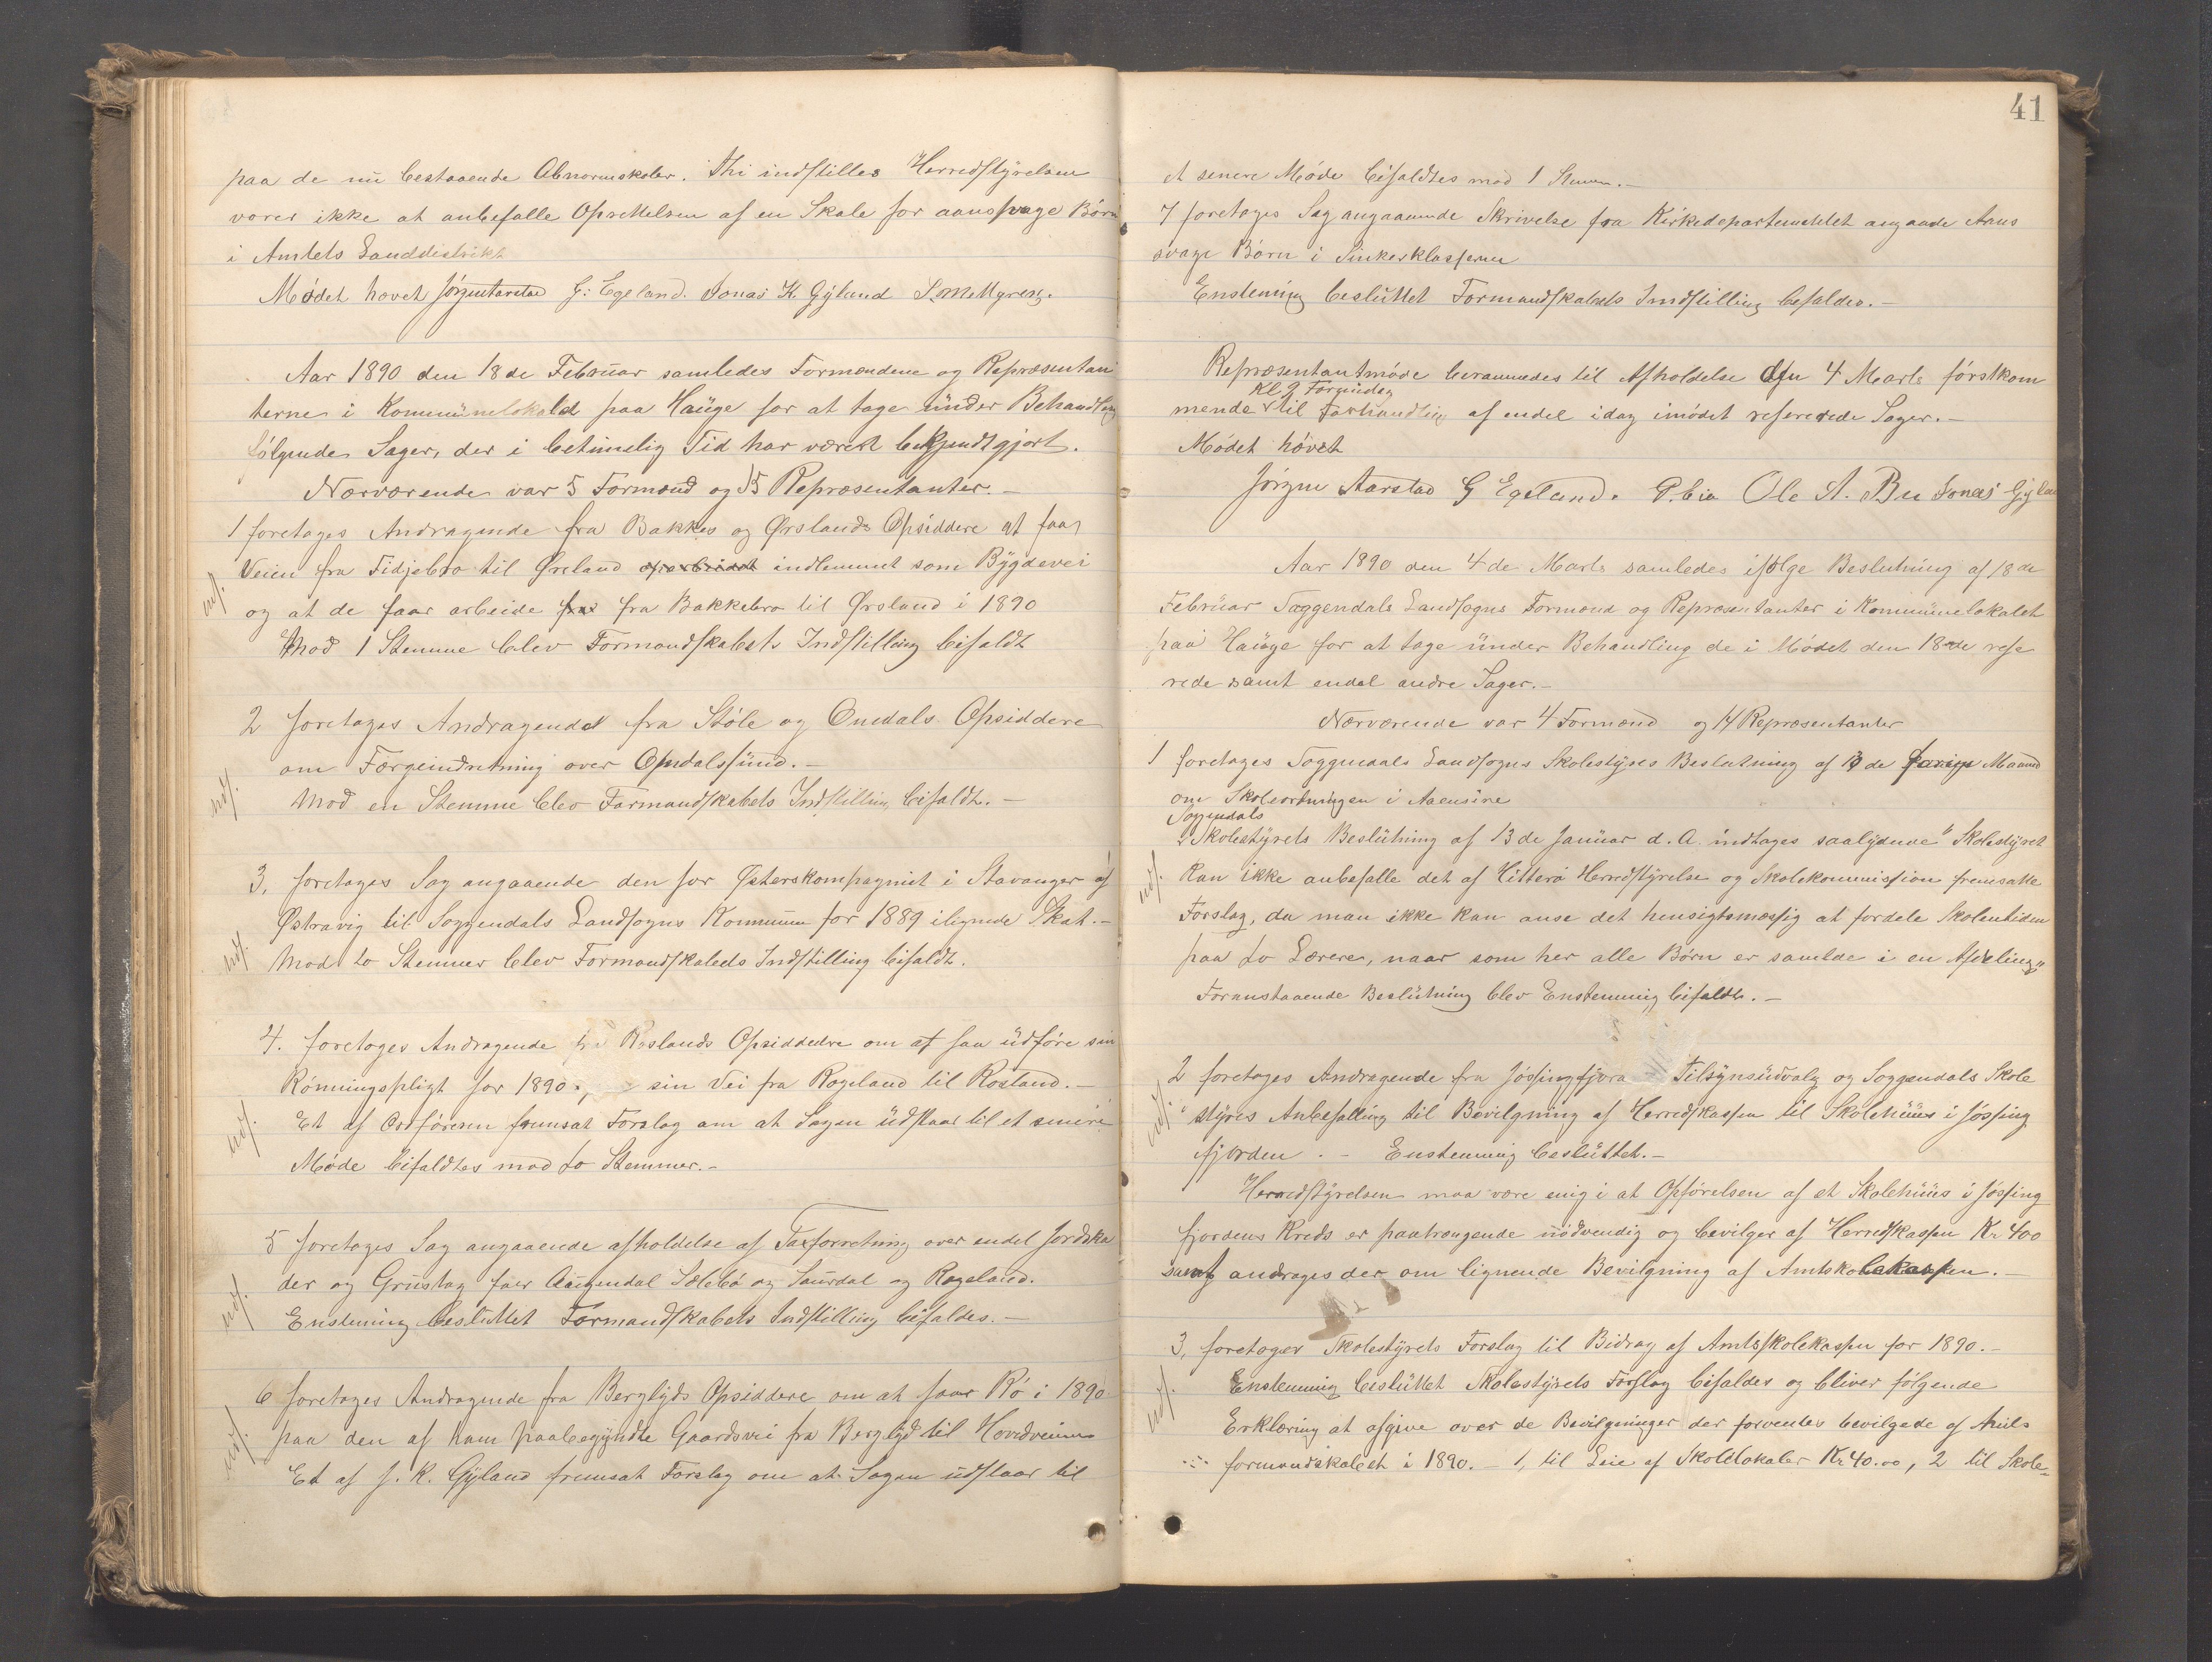 paa de nu bestaaende Abnormskoler. Thi indstilles Herredstyrelsen
vover ikke at anbefalle Oprettelsen af en Skole for aansvage Børn
i Amtets Landdistrikt
Mødet hævet Jørgen Aarstad G: Egeland. Jonas K. Gyland
Aar 1890 den 18de Februar samledes Formændene og Repræsentan
terne i Kommunelokalet paa Hauge for at tage under Behandling
følgende Sager, der i betimelig Tid har været bekjendtgjort.
Nærværende var 5 Formænd og 15 Repræsentanter.-
1 foretages Andragende fra Bakkes og Ørslands Opsiddere at faa
Veien fra Fidjebro til Ørsland oparbeidet indlemmet som Bygdevei
og at de faar arbeide fra fra Bakkebro til Ørsland i 1890
Mod 1 Stemme blev Formandskabets Indstilling bifaldt
2 foretages Andragendet fra Støle og Omdals Opsiddere
om Færgeindretning over Omdalssund.-
Mod en Stemme blev Formandskabets Indstilling bifaldt.-
3, foretages Sag angaaende den for Østerskompagniet i Stavanger af
Østravig til Soggendals Landsogns Kommune for 1889 ilignede Skat.-
Mod to Stemmer blev Formandskabets Indstilling bifaldt.
4. foretages Andragende fra Roslands Opsiddere om at faa udføre sin
Rømningspligt for 1890 sin Vei fra Rageland til Rosland.-
Et af Ordføreren fremsat Forslag om at Sagen udstaar til et senere
Møde bifaldtes mod to Stemmer.-
5 foretages Sag angaaende afholdelse af Taxforretning over endel Jordska
der og Grustag Sælebø og Saurdal og Rageland.
Enstemmig besluttet Formandskabets Indstilling bifaldes.-
6 foretages Andragende fra Berglyds Opsiddere om at faar Rø i 1890
paa den af ham paabegyndte Gaardsvei fra Berglyd til Hovedveien
Et af J. K. Gyland fremsat Forslag om at Sagen udstaar til
41
et senere Møde bifaldtes mod 1 Stemme.-
7 foretages Sag angaaende Skrivelse fra Kirkedepartementet angaaende Aans
svage Børn i Sinkeklasserne
Enstemmig besluttet Formandskabets Indstilling bifaldes.-
Repræsentantmøde berammedes til Afholdelse den 4 Marts førstkom
Kl 9 Formiddag
mende til Forhandling af endel idag imødet refererede Sager.-
Mødet hævet
Jørgen Aarstad G Egeland. P. Eia Ole A. Bu Jonas Gyland
Aar 1890 den 4de Marts samledes ifølge Beslutning af 18de
Februar Soggendals Landsogns Formænd og Repræsentanter i Kommunelokalet
paa Hauge for at tage under Behandling de i Mødet den 18de refe
rede samt endel andre Sager.-
Nærværende var 4 Formænd og 14 Repræsentanter
1 foretages Soggendals Landsogns Skolestyres Beslutning af 13de Maaned
om Skoleordningen i Aaensire
Soggendals
Skolestyrets Beslutning af 13de Januar d. A. indtages saalydende "Skolestyret
kan ikke anbefalle det af Hitterø Herredstyrelse og Skolekommission fremsatte
Forslag, da man ikke kan anse det hensigtsmæssig at fordele Skoletiden
paa to Lærere, naar som her alle Børn er samlde i en Afdeling"
Foranstaaende Beslutning blev Enstemmig bifaldt.-
2 foretages Andragende fra Jøssingfjora Tilsynsudvalg og Soggendals Skole
styres Anbefalling til Bevilgning af Herredskassen til Skolehuus i Jøssing
fjorden.- Enstemmig besluttet.-
Herredstyrelsen maa være enig i at Opførelsen af et Skolehuus i Jøssing
fjordens Kreds er paatrængende nødvendig og bevilger af Herredskassen Kr 400
samt andrages der om lignende Bevilgning af Amtskolekassen.-
3, foretages Skolestyrets Forslag til Bidrag af Amtsskolekassen for 1890.-
Enstemmig besluttet Skolestyrets Forslag bifaldes og bliver følgende
Erklæring at afgive over de Bevilgninger der forventes bevilgede af Amts
formandskabet i 1890.- 1, til Leie af Skolelokaler Kr 40.00, 2 til Skole-